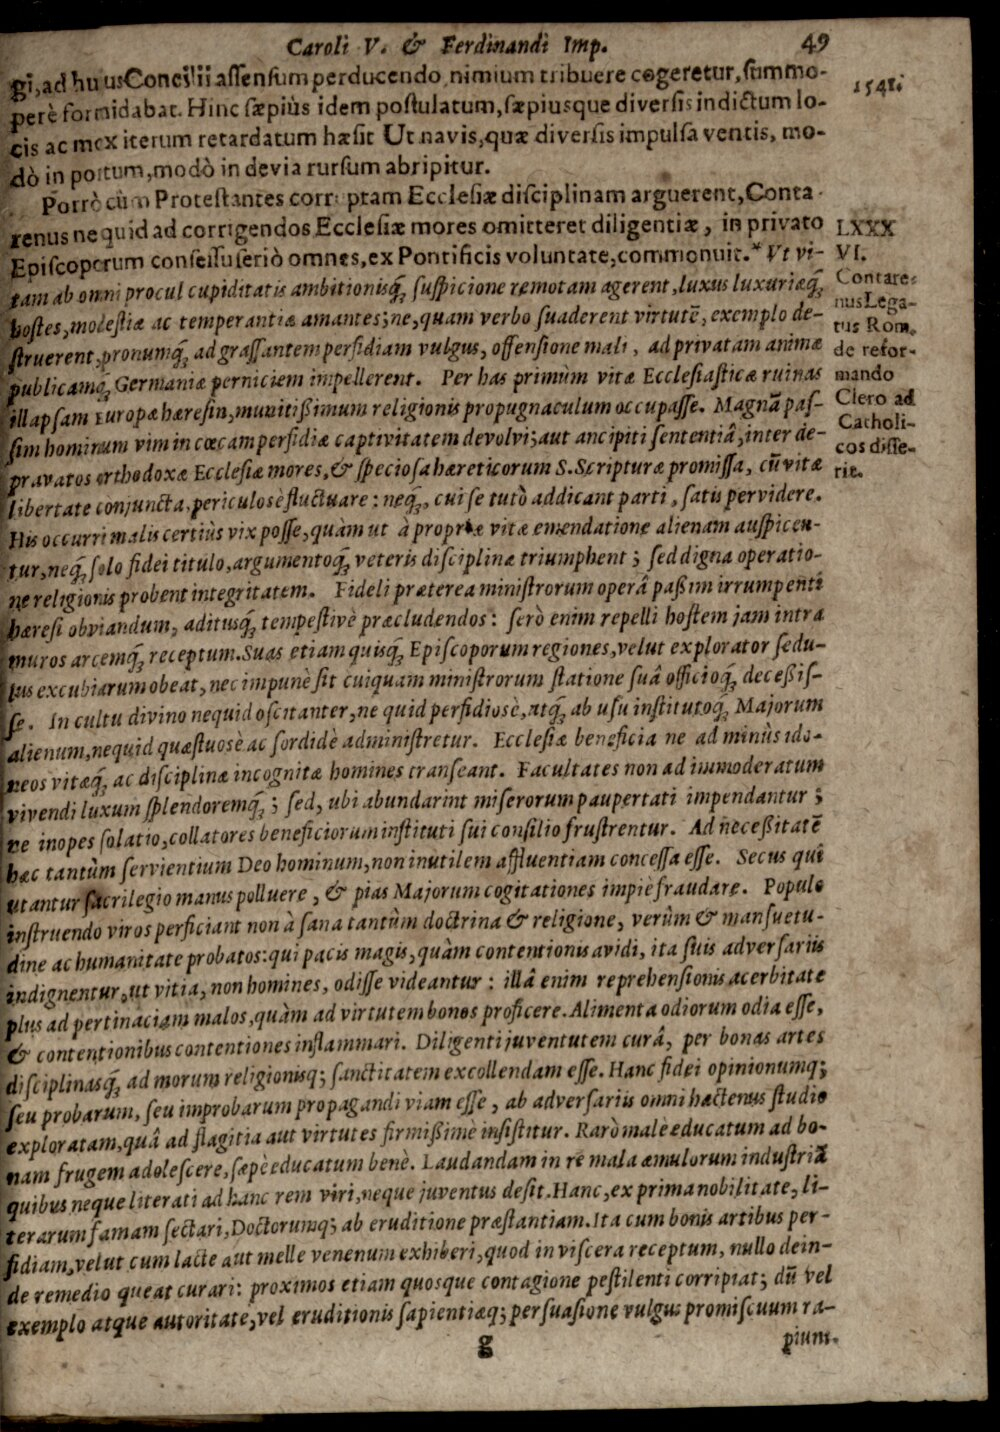 Caroli V. & Ferdinandi Imp. 49
gi, ad hujus Concilii assensum perducendo nimium tribuere cogeretur, summo-
perè formidabat. Hinc sæpiùs idem postulatum, sæpiusque diversis indictum lo-
cis ac mox iterum retardatum hæsit Ut navis, quæ diversis impulsa ventis, mo-
dò in portum, modò in devia rursum abripitur.
1541.
Porrò cùm Protestantes corruptam Ecclesiæ disciplinam arguerent, Conta-
renus ne quid ad corrigendos Ecclesiæ mores omitteret diligentiæ, in privato
Episcoporum consessu seriò omnes, ex Pontificis voluntate, commonuit. * Vt vi-
tam ab omni procul cupiditatis ambitionisq́ꝫ suspicione remotam agerent, luxus luxuriæq́ꝫ
hostes, molestiæ ac temperantiæ amantes; ne, quam verbo suaderent virtutē, exemplo de-
struerent, pronumq́ꝫ ad grassantem perfidiam vulgus, offensione mali, ad privatam animæ
publicamq́ꝫ Germaniæ perniciem impellerent. Per has primùm vitæ Ecclesiasticæ ruinas
illapsam Europæ hæresin, munitißimum religionis propugnaculum occupasse. Magnā pas-
sim hominum vim in cœcam perfidiæ captivitatem devolvi; aut ancipiti sententiâ, inter de-
pravatos orthodoxæ Ecclesiæ mores, & speciosa hæreticorum S. Scripturæ promissa, cū vitæ
libertate conjuncta, periculosè fluctuare: neq́ꝫ, cui se tutò addicant parti, satis pervidere.
His occurri malis certiùs vix posse, quàm ut à propriæ vitæ emendatione alienam auspicen-
tur, neq́ꝫ solo fidei titulo, argumentoq́ꝫ veteris disciplinæ triumphent; sed digna operatio-
ne religionis probent integritatem. Fideli præterea ministrorum operâ paßim irrumpenti
hæresi obviandum, aditusq́ꝫ tempestivè præcludendos: serò enim repelli hostem jam intra
muros arcemq́ꝫ receptum. Suas etiam quisq́ꝫ Episcoporum regiones, velut explorator sedu-
lus excubiarum obeat, nec impunè sit cuiquam ministrorum statione suâ officioq́ꝫ deceßis-
se. In cultu divino nequid oscitanter, ne quid perfidiosè, utq́ꝫ ab usu institutoq́ꝫ Majorum
alienum, nequid quæstuosè ac sordidè administretur. Ecclesiæ beneficia ne ad minùs ido-
neos vitæq́ꝫ ac disciplinæ incognitæ homines transeant. Facultates non ad immoderatum
vivendi luxum splendoremq́ꝫ; sed, ubi abundarint miserorum paupertati impendantur;
ne inopes solatio, collatores beneficiorum instituti sui consilio frustrentur. Ad neceßitatē
hæc tantùm servientium Deo hominum, non inutilem affluentiam concessa esse. Secus qui
utantur sacrilegio manus polluere, & pias Majorum cogitationes impiè fraudare. Populo
instruendo viros perficiant non à sana tantùm doctrina & religione, verùm & mansuetu-
dine ac humanitate probatos: qui pacis magis, quàm contentionis avidi, ita suis adversariis
indignentur, ut vitia, non homines, odisse videantur: illâ enim reprehensionis acerbitate
plus ad pertinaciam malos, quàm ad virtutem bonos proficere. Alimenta odiorum odia esse,
& contentionibus contentiones inflammari. Diligenti juventutem curâ, per bonas artes
disciplinasq́ꝫ ad morum religionisq; sanctitatem excollendam esse. Hanc fidei opinionumq;
seu probarum, seu improbarum propagandi viam esse, ab adversariis omni hactenus studio
exploratam, quâ ad flagitia aut virtutes firmißimè insistitur. Rarò malè educatum ad bo-
nam frugem adolescere, sæpè educatum benè. Laudandam in re mala æmulorum industriā
quibus neque literati ad hanc rem viri, neque juventus desit. Hanc, ex prima nobilitate, li-
terarum famam sectari, Doctorumq; ab eruditione præstantiam. Ita cum bonis artibus per-
fidiam, velut cum lacte aut melle venenum exhiberi, quod in viscera receptum, nullo dein-
de remedio queat curari: proximos etiam quosque contagione pestilenti corripiat; dū vel
exemplo atque autoritate, vel eruditionis sapientiæq; persuasione vulgus promiscuum ra-
g pium-
LXXX
VI.
Contare-
nus Lega-
tus Rom.
de refor-
mando
Clero ad
Catholi-
cos disse-
rit.